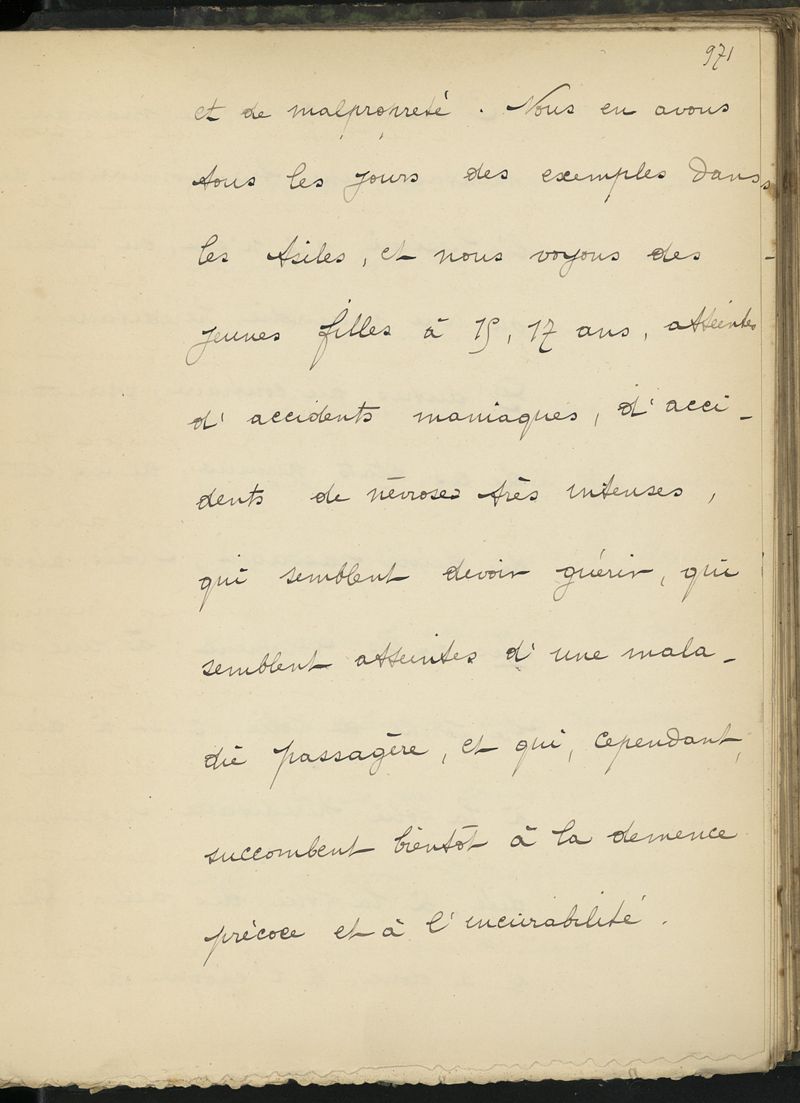 971
et de malpropreté. Nous en avons
tous les jours des exemples dans
les Asiles, et nous voyons des
jeunes filles à 15, 17 ans, atteintes
d'accidents maniaques, d'acci-
dents de névroses très intenses,
qui semblent devoir guérir, qui
semblent atteintes d'une mala-
die passagère, et qui, cependant,
succombent bientôt à la demence
précoce et à l'incurabilité.